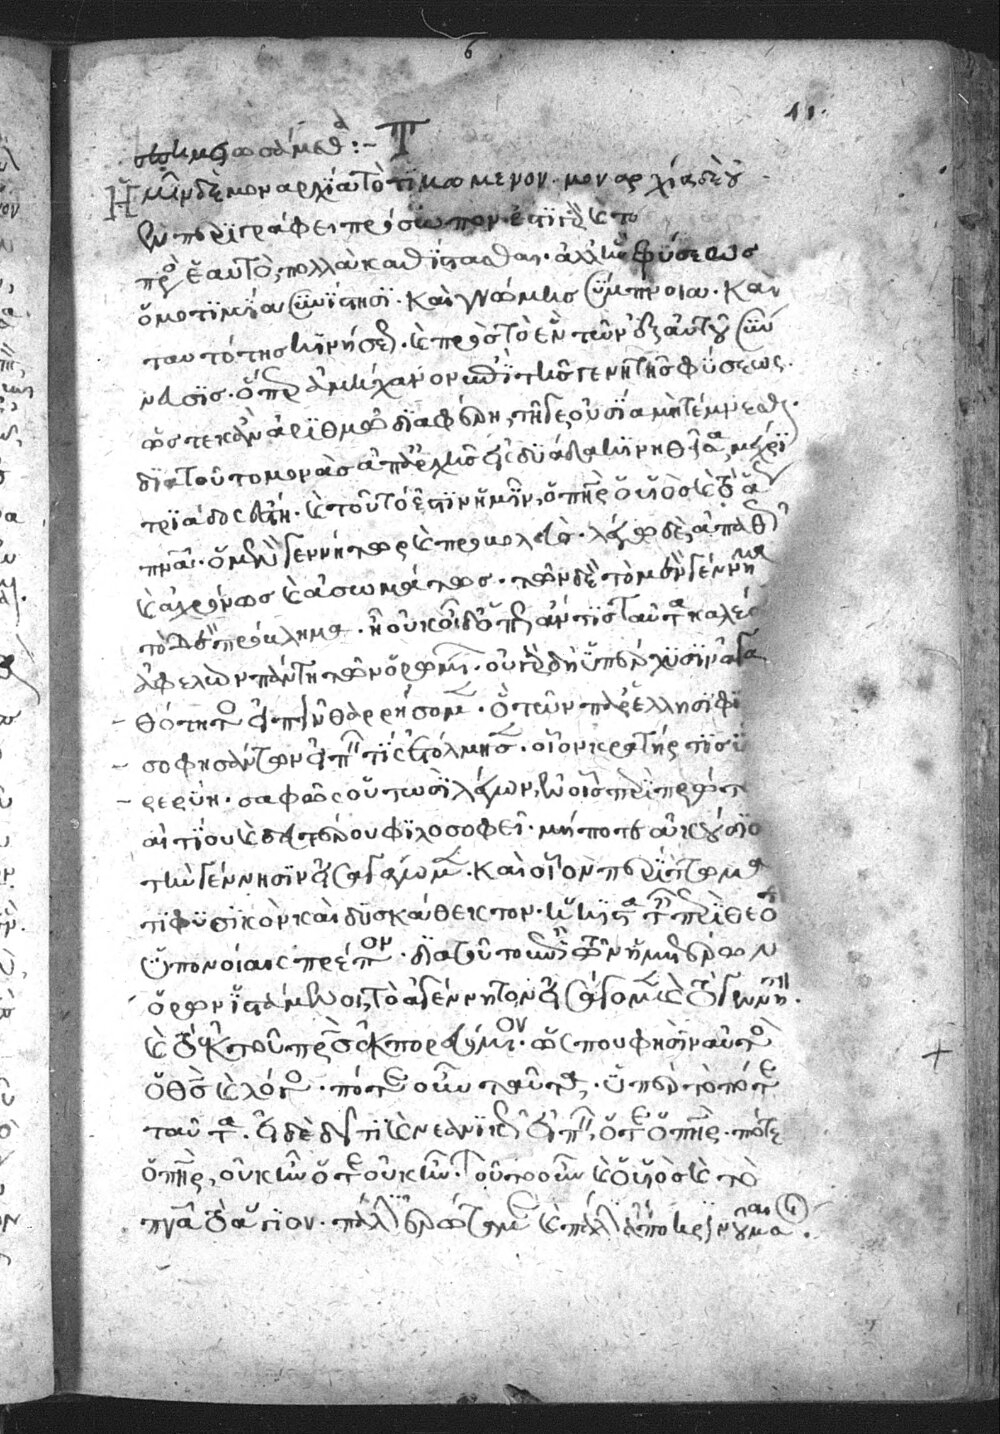 Ἡμῖν δὲ μοναρχία τὸ τιμώμενον· μοναρχία δὲ οὐ
ἓν περιγράφει πρόσωπον· ἔστι γὰρ καὶ τὸ
πρὸς ἑαυτὸ, πολλὰ καθίστασθαι· ἀλλ' ἣν φύσεως
ὁμοτιμία συνίστησι· καὶ γνώμης σύμπνοια· καὶ
ταυτότης κινήσεως· καὶ πρὸς τὸ ἓν τῶν ἐξ αὐτοῦ σύν
νευσις· ὅπερ ἀμήχανον ἐπὶ τῆς γενητῆς φύσεως·
ὥστε κἂν ἀριθμῷ διαφέρῃ, τῇ γε οὐσίᾳ μὴ τέμνεσθαι·
διὰ τοῦτο μονὰς ἀπαρχῆς εἰς δυάδα κινηθεῖσα, μέχρι
τριάδος ἔστη· καὶ τοῦτό ἐστιν ἡμῖν, ὁ πατὴρ ὁ υἱὸς καὶ τὸ ἅγιον
πνεῦμα· ὁ μὲν γεννήτωρ καὶ προβολεύς· λέγω δὲ, ἀπαθῶς
καὶ ἀχρόνως καὶ ἀσωμάτως· τῶν δὲ τὸ μὲν γέννημα
τὸ δὲ πρόβλημα· ἢ οὐκ οἶδ' ὅπως ἄν τις ταῦτα καλέσ
ἀφελὼν πάντη τῶν ὁρωμένων· οὐ γὰρ δὴ ὑπέρχυσιν ἀγα
θότητος εἰπεῖν θαρρήσομεν· ὃ τῶν παρ' ἕλλησι φι
σοφησάντων εἰπεῖν τις ἐτόλμησεν· οἷον κρατήρ τις ὑ
ρερύη· σαφῶς οὑτωσὶ λέγων, ἐν οἷς περὶ πρώτ
αἰτίου καὶ δευτέρου φιλοσοφεῖ· μή ποτε ἀκούσιο
τὴν γέννησιν εἰσαγάγωμεν· καὶ οἷον περίττωμά
τι φυσικὸν καὶ δυσκάθεκτον· ἥκιστα ταῖς περὶ θεό
ὑπονοίαις πρέπον· διὰ τοῦτο ἐπὶ τῶν ἡμετέρων
ὅρων ἱστάμενοι, τὸ ἀγέννητον εἰσάγομεν καὶ τὸ γεννητὸν·
καὶ τὸ ἐκ τοῦ πατρὸς ἐκπορευόμενον· ὥς πού φησιν αὐτὸς
ὁ θεὸς καὶ λόγος· πότε οὖν ταῦτα, ὑπὲρ τὸ πότε
ταῦτα· εἰ δὲ δεῖ τι καὶ νεανικῶς εἰπεῖν, ὅτε ὁ πατήρ· πότε
ὁ πατήρ, οὐκ ἦν ὅτε οὐκ ἦν· τοῦτο οὖν καὶ ὁ υἱὸς καὶ τὸ
πνεῦμα τὸ ἅγιον· πάλιν ἐρώτα με καὶ πάλιν